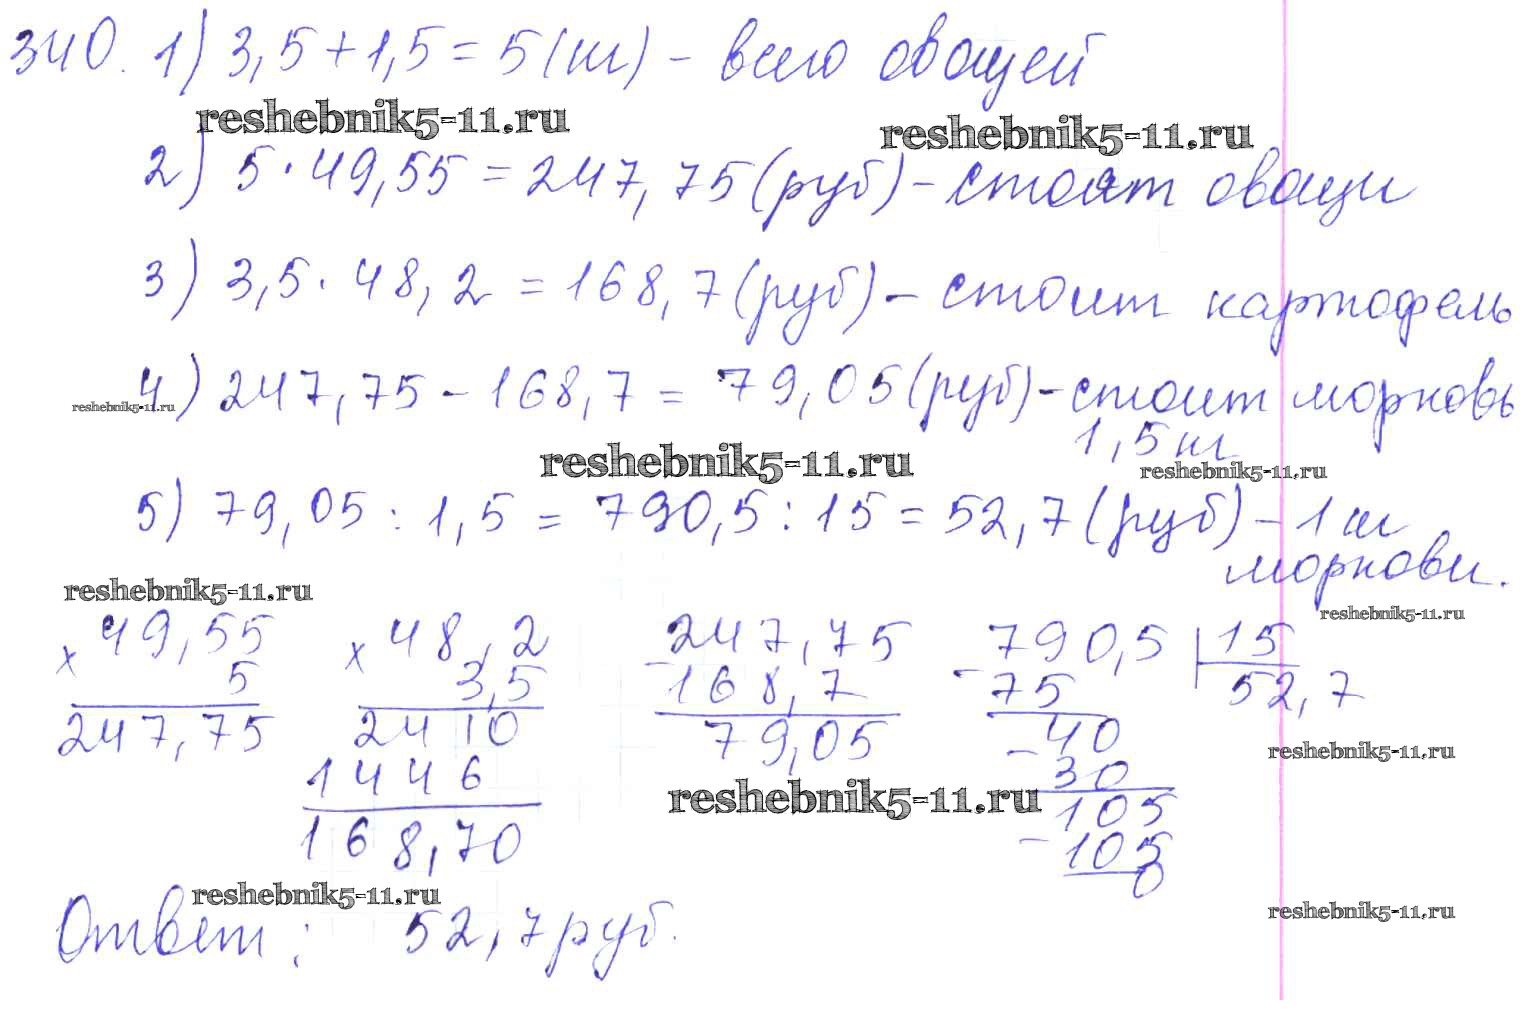 340. 1) 3,5 + 1,5 = 5 (кг) - всего овощей
reshebnik5-11.ru reshebnik5-11.ru
2) 5 · 49,55 = 247,75 (руб) - стоят овощи
3) 3,5 · 48,2 = 168,7 (руб) - стоит картофель
4) 247,75 - 168,7 = 79,05 (руб) - стоит морковь
reshebnik5-11.ru
1,5 кг
reshebnik5-11.ru reshebnik5-11.ru
5) 79,05 : 1,5 = 790,5 : 15 = 52,7 (руб) - 1 кг
моркови.
reshebnik5-11.ru
reshebnik5-11.ru
× 49,55 × 48,2 - 247,75 - 790,5 | 15
5 3,5 168,7 75 52,7
247,75 2410 79,05 40
reshebnik5-11.ru
1446 - 30
reshebnik5-11.ru
168,70 105
- 105
0
reshebnik5-11.ru reshebnik5-11.ru
Ответ: 52,7 руб.